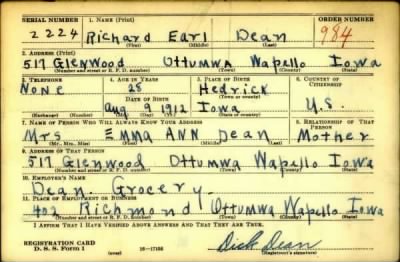 SERIAL NUMBER 1. NAME (Print) ORDER NUMBER
2224 Richard Earl Dean 984
(First) (Middle) (Last)
2. ADDRESS (Print)
517 Glenwood Ottumwa Wapello Iowa
(Number and street or R. F. D. number) (Town) (County) (State)
3. TELEPHONE 4. AGE IN YEARS 5. PLACE OF BIRTH 6. COUNTRY OF CITIZENSHIP
None 28 Hedrick
DATE OF BIRTH (Town or county)
Aug 9 1912 Iowa U.S.
(Exchange) (Number) (Mo.) (Day) (Yr.) (State or country)
7. NAME OF PERSON WHO WILL ALWAYS KNOW YOUR ADDRESS 8. RELATIONSHIP OF THAT PERSON
Mrs Emma Ann Dean Mother
(Mr., Mrs., Miss) (First) (Middle) (Last)
9. ADDRESS OF THAT PERSON
517 Glenwood Ottumwa Wapello Iowa
(Number and street or R. F. D. number) (Town) (County) (State)
10. EMPLOYER'S NAME
Dean Grocery.
11. PLACE OF EMPLOYMENT OR BUSINESS
402 Richmond Ottumwa Wapello Iowa
(Number and street or R. F. D. number) (Town) (County) (State)
I AFFIRM THAT I HAVE VERIFIED ABOVE ANSWERS AND THAT THEY ARE TRUE.
REGISTRATION CARD
D. S. S. Form 1 (over) 16-17105 Dick Dean
(Registrant's signature)